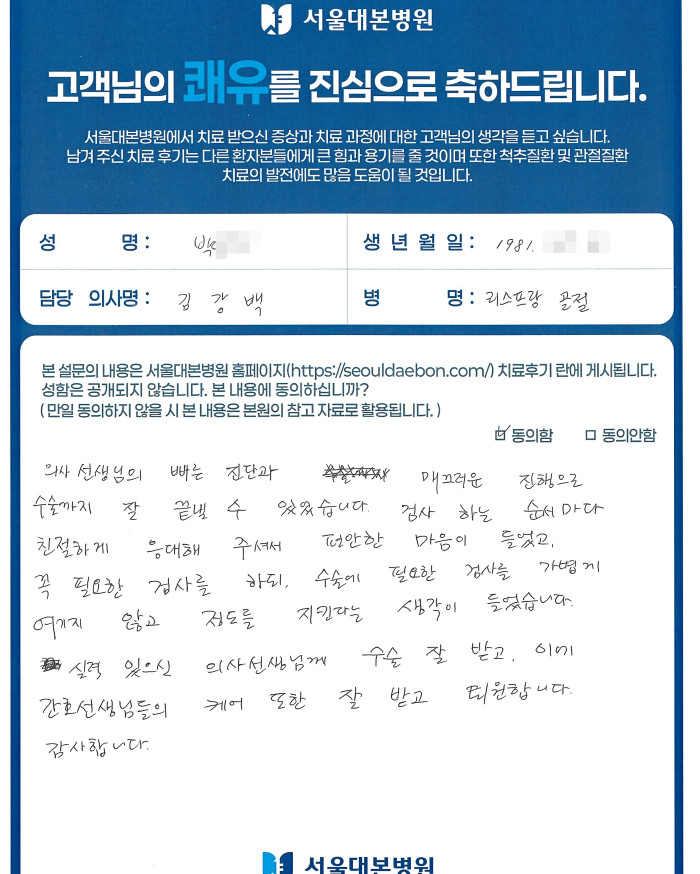 서울대본병원
고객님의 쾌유를 진심으로 축하드립니다.
서울대본병원에서 치료 받으신 증상과 치료 과정에 대한 고객님의 생각을 듣고 싶습니다.
남겨 주신 치료 후기는 다른 환자분들에게 큰 힘과 용기를 줄 것이며 또한 척추질환 및 관절질환
치료의 발전에도 많음 도움이 될 것입니다.
성 명 : 박
생 년 월 일 : 1981.
담당 의사명 : 김 강 백
병 명 : 리스프랑 골절
본 설문의 내용은 서울대본병원 홈페이지(https://seouldaebon.com/) 치료후기 란에 게시됩니다.
성함은 공개되지 않습니다. 본 내용에 동의하십니까?
( 만일 동의하지 않을 시 본 내용은 본원의 참고 자료로 활용됩니다. )
동의함 동의안함
의사 선생님의 빠른 진단과 매끄러운 진행으로
수술까지 잘 끝낼 수 있었습니다. 검사 하는 순서마다
친절하게 응대해 주셔서 편안한 마음이 들었고,
꼭 필요한 검사를 하되, 수술에 필요한 검사를 가볍게
여기지 않고 정도를 지킨다는 생각이 들었습니다.
실력 있으신 의사선생님께 수술 잘 받고, 이에
간호선생님들의 케어 또한 잘 받고 퇴원합니다.
감사합니다.
서울대본병원